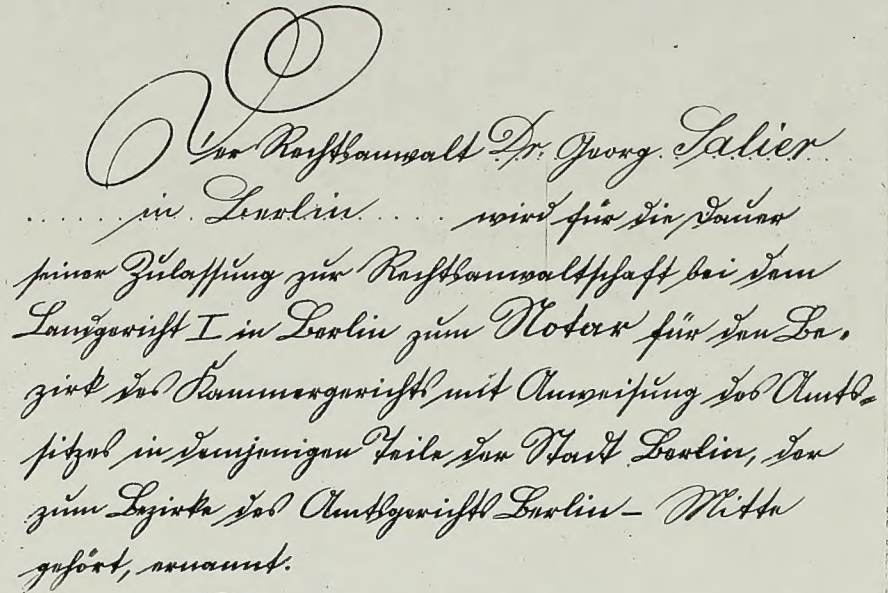 Der Rechtsanwalt Dr. Georg Salier
in Berlin wird für die Dauer
seiner Zulassung zur Rechtsanwaltschaft bei dem
Landgericht I in Berlin zum Notar für den Be-
zirk des Kammergerichts mit Anweisung des Amts-
sitzes in demjenigen Teile der Stadt Berlin, der
zum Bezirke des Amtsgerichts Berlin – Mitte
gehört, ernannt.